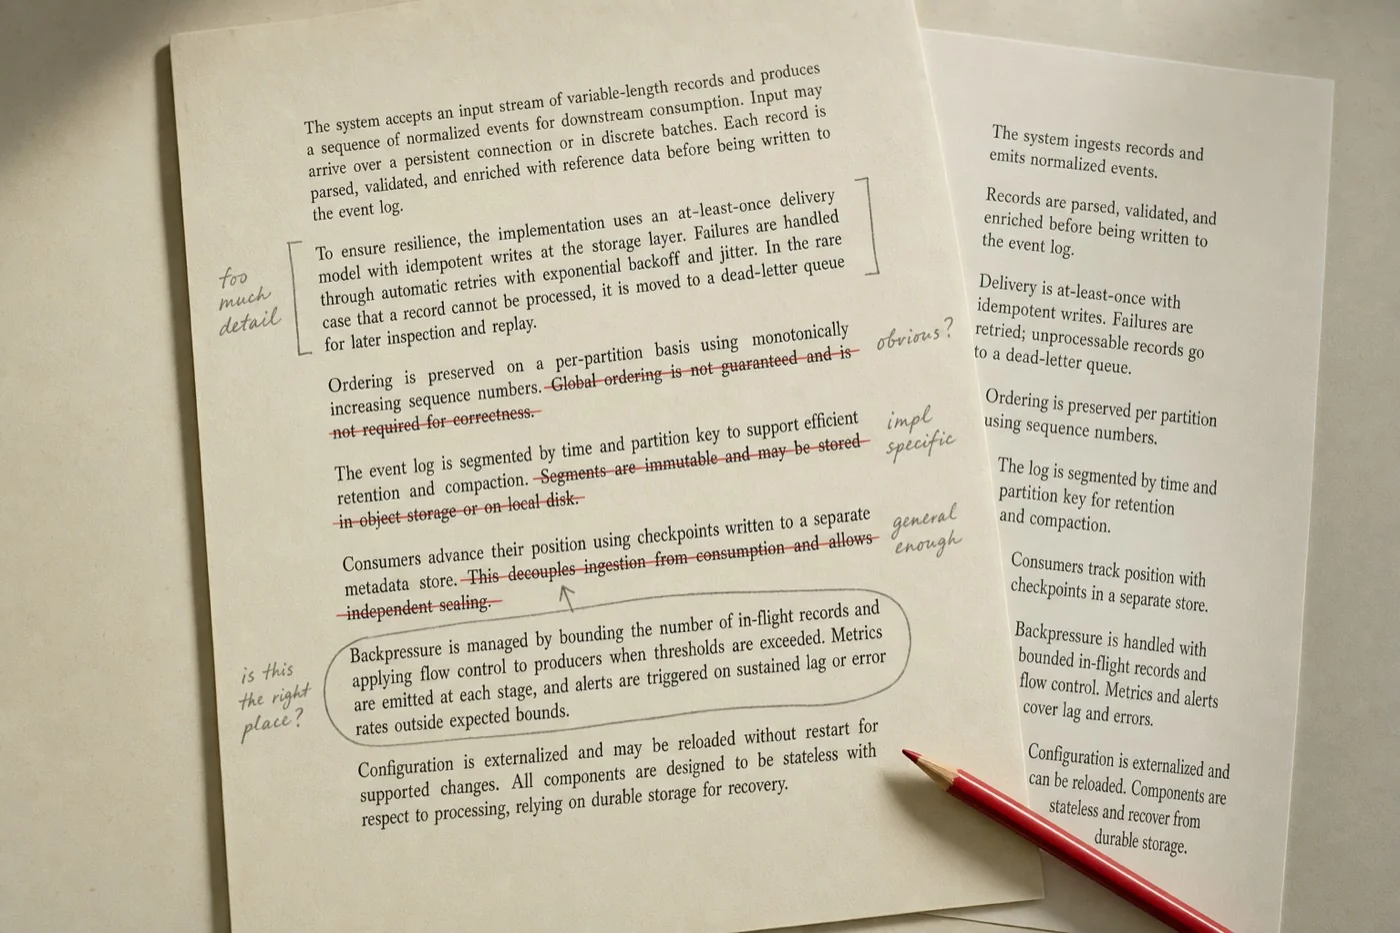 The system accepts an input stream of variable-length records and produces
a sequence of normalized events for downstream consumption. Input may
arrive over a persistent connection or in discrete batches. Each record is
parsed, validated, and enriched with reference data before being written to
the event log.
too
much
detail
To ensure resilience, the implementation uses an at-least-once delivery
model with idempotent writes at the storage layer. Failures are handled
through automatic retries with exponential backoff and jitter. In the rare
case that a record cannot be processed, it is moved to a dead-letter queue
for later inspection and replay.
Ordering is preserved on a per-partition basis using monotonically
increasing sequence numbers. Global ordering is not guaranteed and is
not required for correctness.
obvious?
The event log is segmented by time and partition key to support efficient
retention and compaction. Segments are immutable and may be stored
in object storage or on local disk.
impl
specific
Consumers advance their position using checkpoints written to a separate
metadata store. This decouples ingestion from consumption and allows
independent sealing.
general
enough
is this
the right
place?
Backpressure is managed by bounding the number of in-flight records and
applying flow control to producers when thresholds are exceeded. Metrics
are emitted at each stage, and alerts are triggered on sustained lag or error
rates outside expected bounds.
Configuration is externalized and may be reloaded without restart for
supported changes. All components are designed to be stateless with
respect to processing, relying on durable storage for recovery.
The system ingests records and
emits normalized events.
Records are parsed, validated, and
enriched before being written to
the event log.
Delivery is at-least-once with
idempotent writes. Failures are
retried; unprocessable records go
to a dead-letter queue.
Ordering is preserved per partition
using sequence numbers.
The log is segmented by time and
partition key for retention
and compaction.
Consumers track position with
checkpoints in a separate store.
Backpressure is handled with
bounded in-flight records and
flow control. Metrics and alerts
cover lag and errors.
Configuration is externalized and
can be reloaded. Components are
stateless and recover from
durable storage.